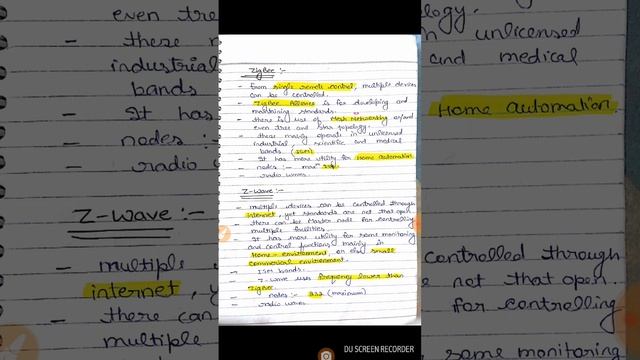 ZigBee :-
- from single remote control, multiple devices
can be controlled.
- ZigBee Alliance is for developing and
maintaining standards.
- there is use of Mesh Networking and
even tree and star topology.
- these mainly operate in unlicensed
industrial, scientific and medical
bands (ISM)
- It has more utility for Home automation
- nodes :- max
- radio waves.
Z-Wave :-
- multiple devices can be controlled through
internet, yet standards are not that open.
- there can be Master node for controlling
multiple facilities.
- It has more utility for some monitoring
and control functions mainly in
Home-environment, or also small
commercial environment.
- ISM bands.
- Z-wave uses frequency lower than
ZigBee.
nodes :- 232 (maximum)
- radio waves
even tre
- these m
industrial
bands
It has
nodes:-
radio w
Z-Wave :-
multiple
internet, y
- there can
multiple
ology.
unlicensed
and medical
Home automation
controlled through
not that open.
for controlling
some monitoring
DU SCREEN RECORDER